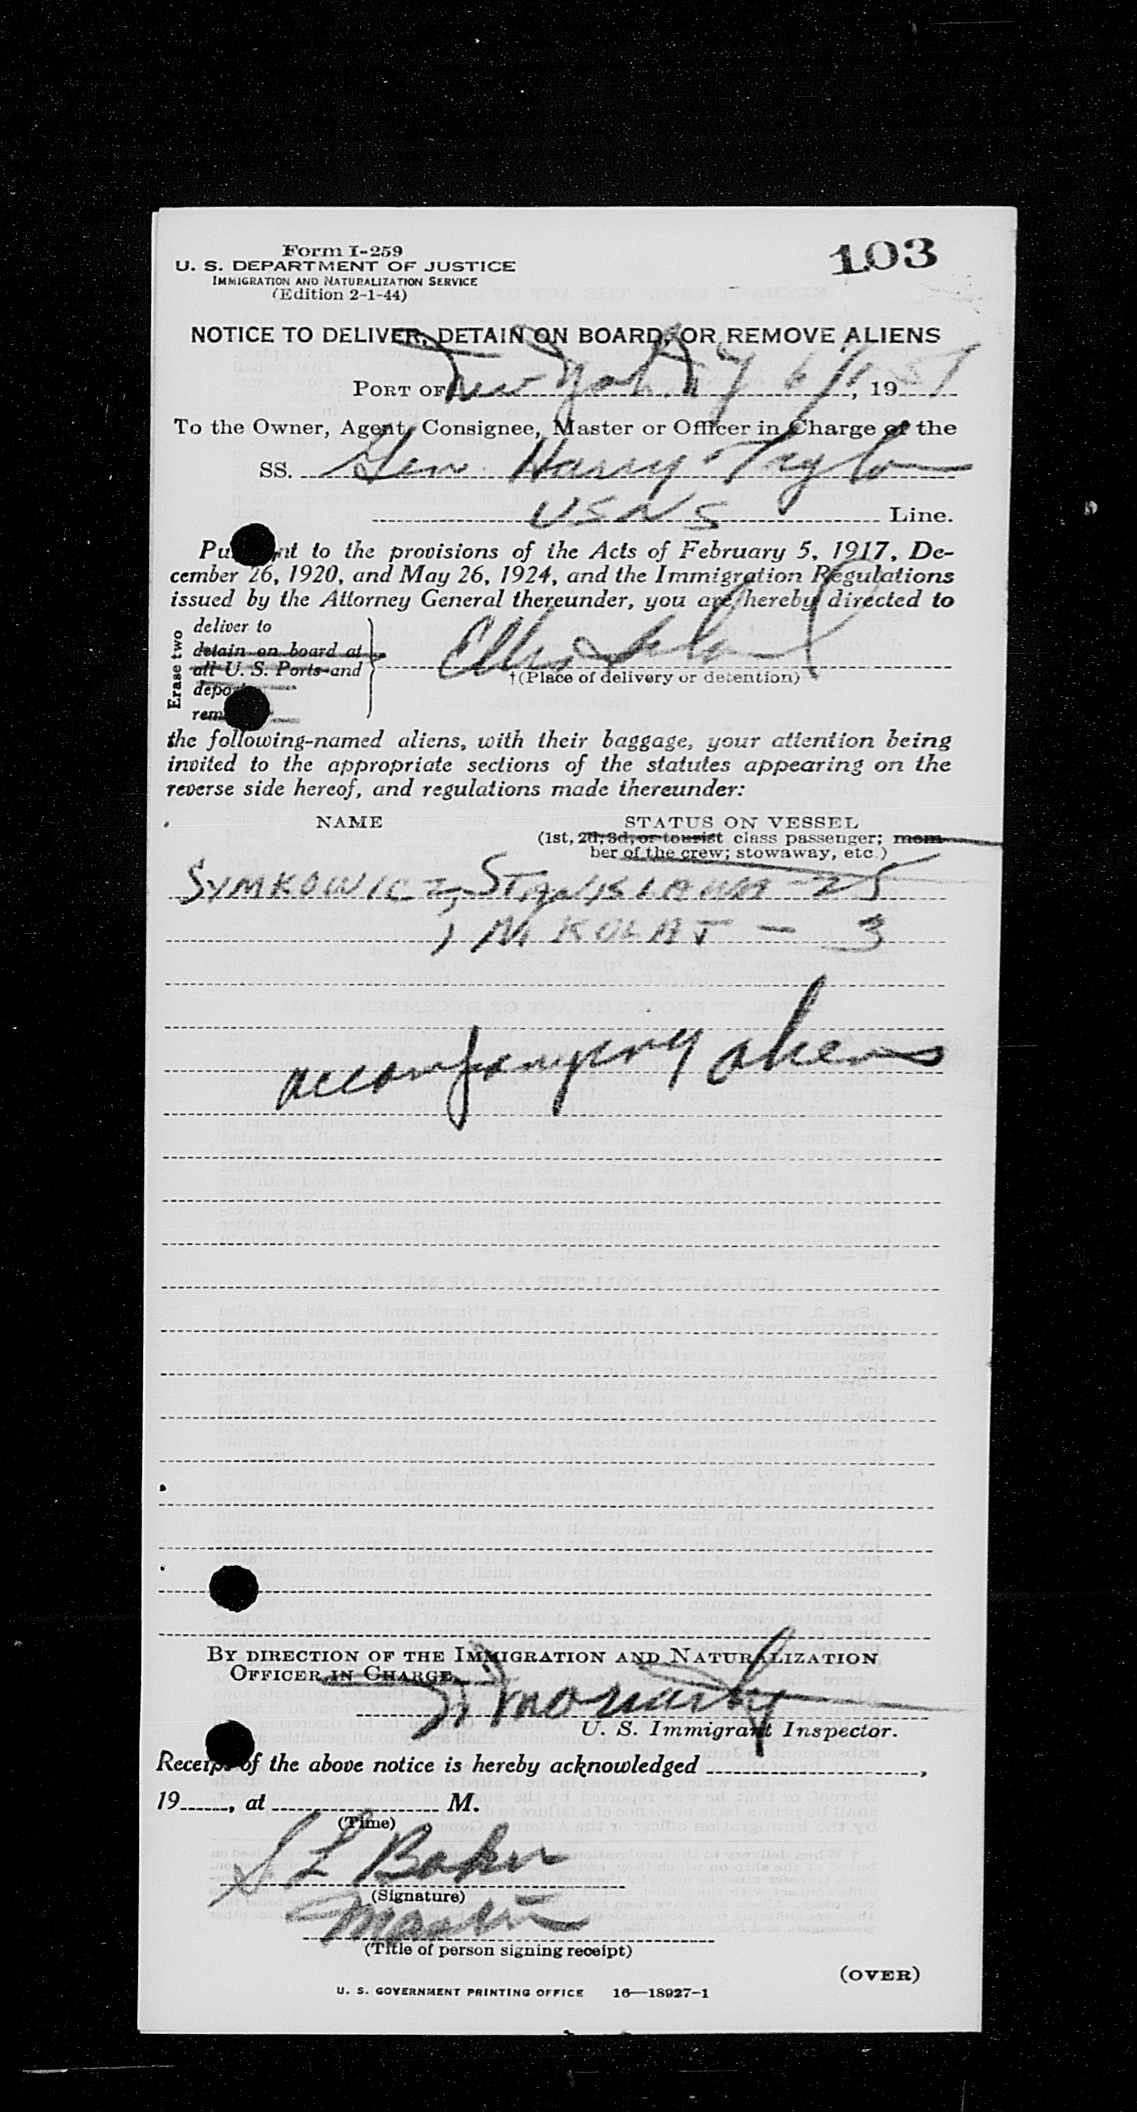 Form I-259
103
U. S. DEPARTMENT OF JUSTICE
IMMIGRATION AND NATURALIZATION SERVICE
(Edition 2-1-44)
NOTICE TO DELIVER, DETAIN ON BOARD, OR REMOVE ALIENS
PORT OF New York, N Y 6/1, 1951
To the Owner, Agent, Consignee, Master or Officer in Charge of the
SS. Gen. Harry Taylor
USNS Line.
Pursuant to the provisions of the Acts of February 5, 1917, De-
cember 26, 1920, and May 26, 1924, and the Immigration Regulations
issued by the Attorney General thereunder, you are hereby directed to
Erase two
deliver to
detain on board at
all U. S. Ports and
depo
rem
Ellis Island
†(Place of delivery or detention)
the following-named aliens, with their baggage, your attention being
invited to the appropriate sections of the statutes appearing on the
reverse side hereof, and regulations made thereunder:
NAME STATUS ON VESSEL
(1st, 2d, 3d, or tourist class passenger; mem-
ber of the crew; stowaway, etc.)
SYMKOWICZ, STANISLAWA - 25
, MIKOLAJ - 3
accompanying aliens
BY DIRECTION OF THE IMMIGRATION AND NATURALIZATION
OFFICER IN CHARGE
Moriarty
U. S. Immigrant Inspector.
Receipt of the above notice is hereby acknowledged ,
19 , at M.
(Time)
S L Baker
(Signature)
Master
(Title of person signing receipt)
(OVER)
U. S. GOVERNMENT PRINTING OFFICE 16—18927-1